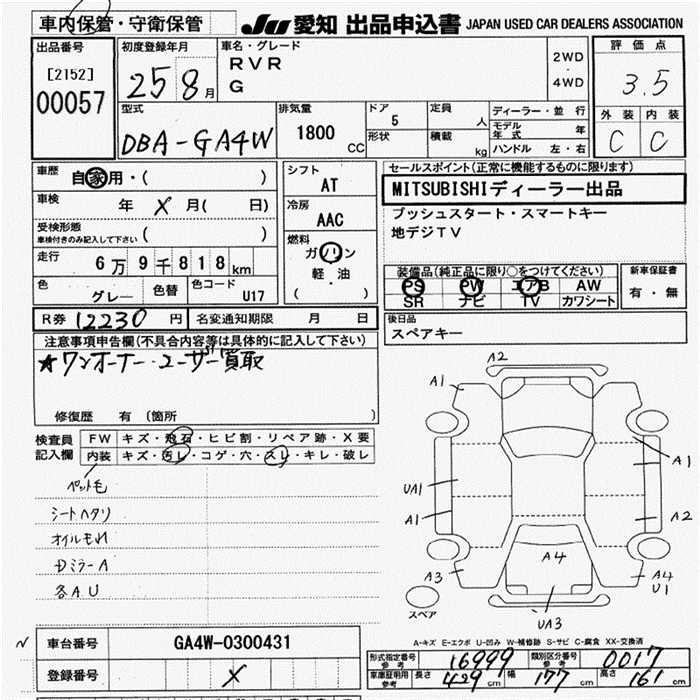 車内保管・守衛保管
JU 愛知 出品申込書 JAPAN USED CAR DEALERS ASSOCIATION
出品番号
[2152]
00057
初度登録年月
25 8月
車名・グレード
RVR
G
2WD
・
4WD
評価点
3.5
外装 内装
C C
型式
DBA-GA4W
排気量
1800
CC
ドア
5
形状
定員
人
積載
kg
ディーラー・並行
モデル年式 年
ハンドル 左・右
車歴
自家用・( )
車検
年 X 月( 日)
受検形態
車検付きのみ記入して下さい ( )
走行
6万9千818km
色
グレー
色替
色コード
U17
シフト
AT
冷房
AAC
燃料
ガソリン
軽・油
( )
セールスポイント(正常に機能するものに限ります)
MITSUBISHIディーラー出品
プッシュスタート・スマートキー
地デジTV
装備品(純正品に限り○をつけてください)
PS PW エアB AW
SR ナビ TV カワシート
新車保証書
有・無
R券 12230 円
名変通知期限 月 日
後日品
スペアキー
注意事項申告欄(不具合内容等は具体的に記入して下さい)
★ワンオーナー・ユーザー買取
修復歴 有 (箇所 )
検査員
記入欄
FW キズ・飛石・ヒビ割・リペア跡・X要
内装 キズ・汚レ・コゲ・穴・スレ・キレ・破レ
ペット毛
シートヘタリ
オイルもれ
DミラーA
各AU
A2
A1
A1
UA1
A1
A2
A3
A4
A4
U1
UA3
スペア
A-キズ E-エクボ U-凹み W-補修跡 S-サビ C-腐食 XX-交換済
N
車台番号 GA4W-0300431
登録番号 X
形式指定番号
参考
16999
類別区分番号
参考
0017
車庫証明用
参考
長さ 429 cm 幅 177 cm 高さ 161 cm